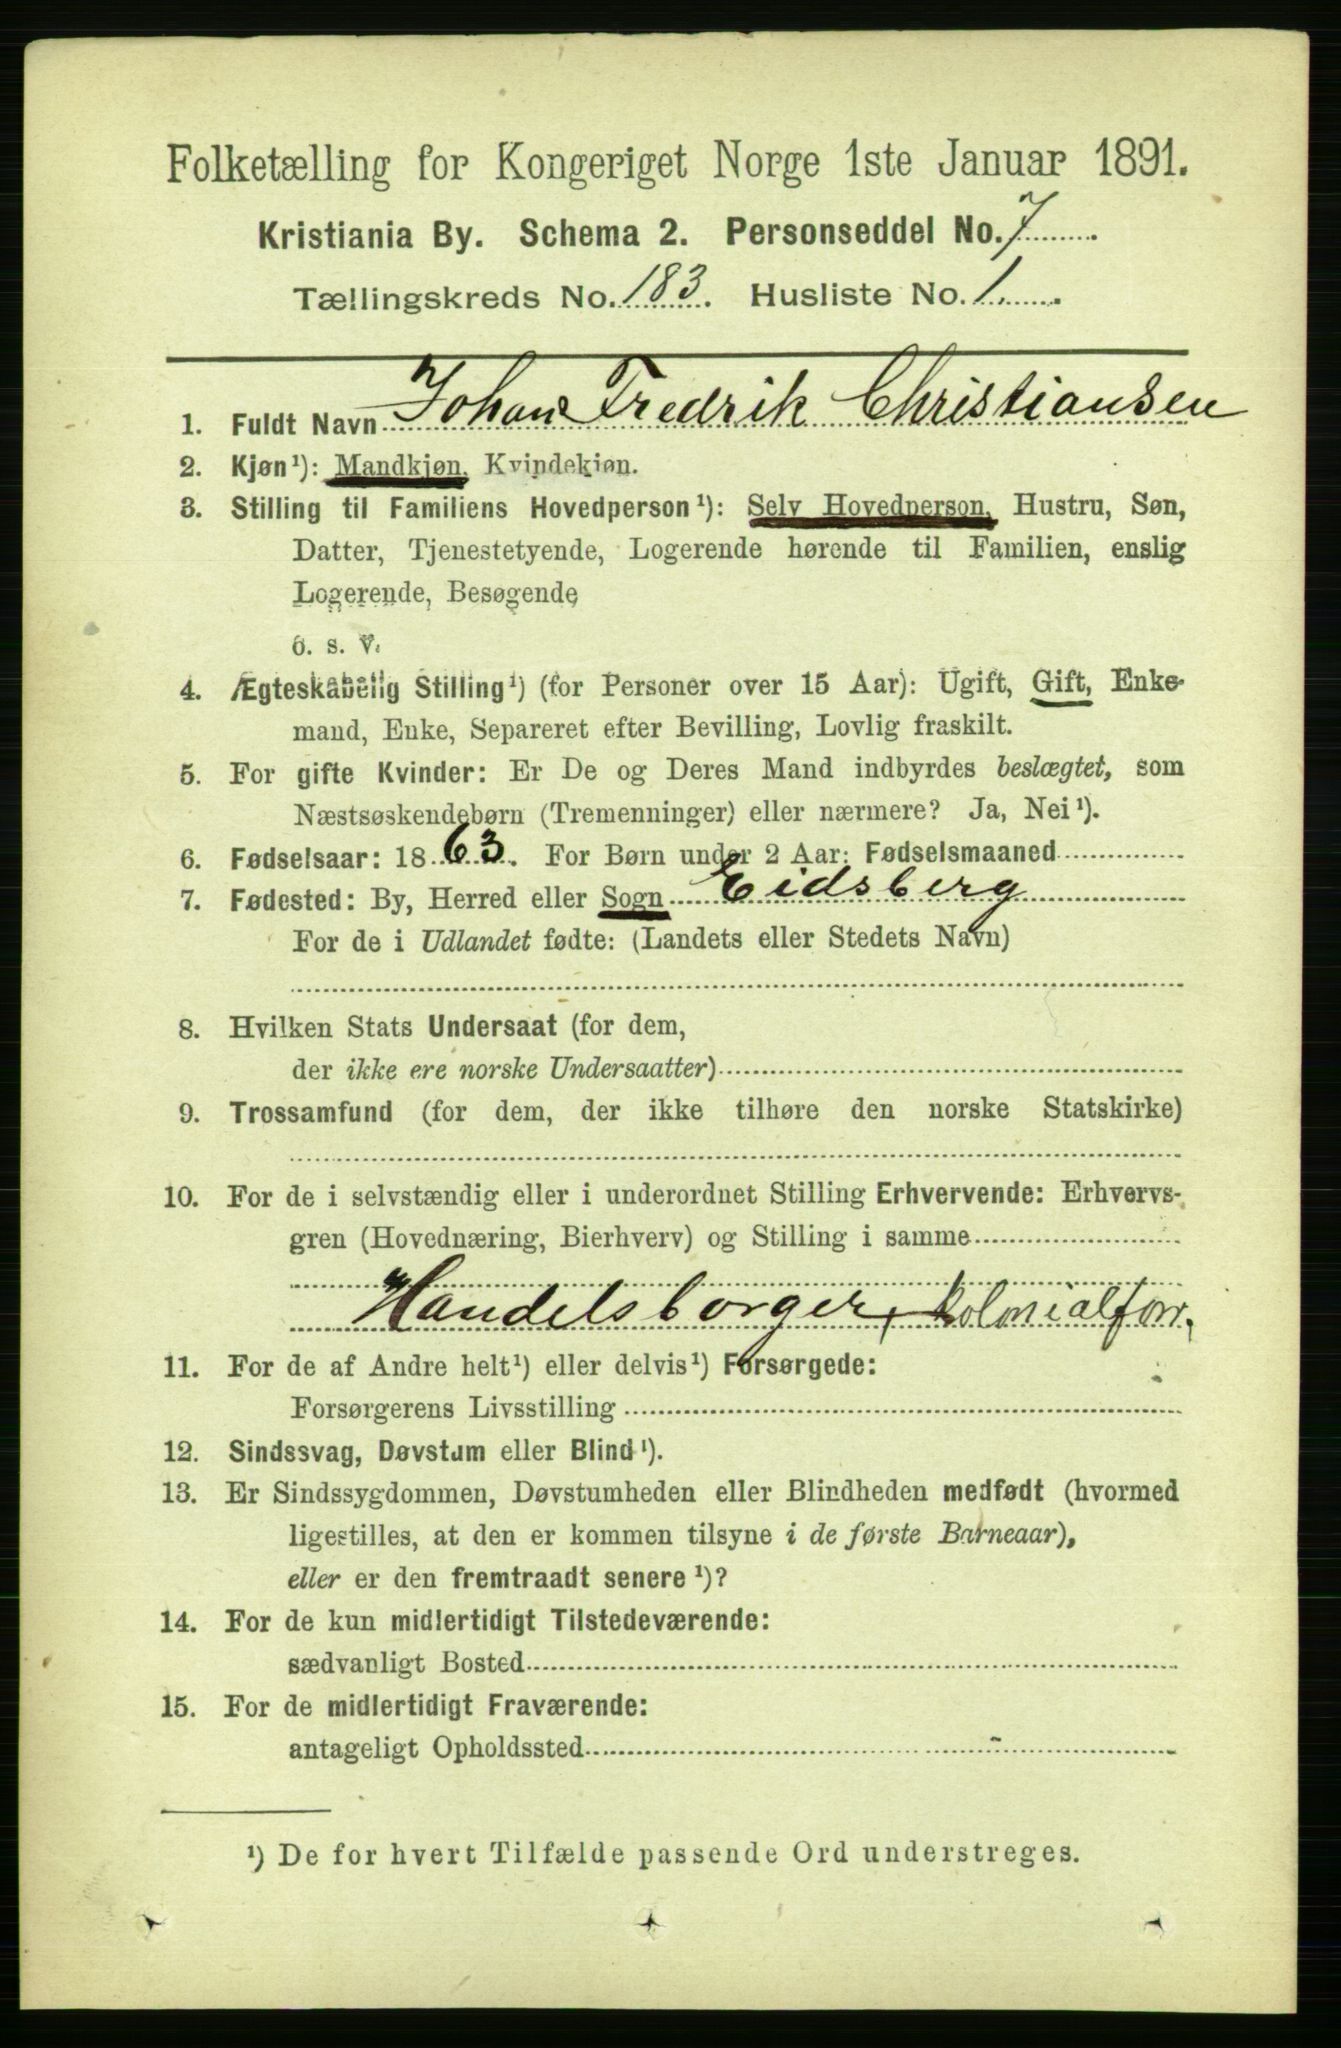 Folketælling for Kongeriget Norge 1ste Januar 1891.
Kristiania By. Schema 2. Personseddel No. 7
Tællingskreds No. 183. Husliste No. 1
1. Fuldt Navn Johan Fredrik Christiansen
2. Kjøn¹): Mandkjøn, Kvindekjøn.
3. Stilling til Familiens Hovedperson¹): Selv Hovedperson, Hustru, Søn,
Datter, Tjenestetyende, Logerende hørende til Familien, enslig
Logerende, Besøgende
o. s. v.
4. Ægteskabelig Stilling¹) (for Personer over 15 Aar): Ugift, Gift, Enke-
mand, Enke, Separeret efter Bevilling, Lovlig fraskilt.
5. For gifte Kvinder: Er De og Deres Mand indbyrdes beslægtet, som
Næstsøskendebørn (Tremenninger) eller nærmere? Ja, Nei¹).
6. Fødselsaar: 1863. For Børn under 2 Aar: Fødselsmaaned
7. Fødested: By, Herred eller Sogn Eidsberg
For de i Udlandet fødte: (Landets eller Stedets Navn)
8. Hvilken Stats Undersaat (for dem,
der ikke ere norske Undersaatter)
9. Trossamfund (for dem, der ikke tilhøre den norske Statskirke)
10. For de i selvstændig eller i underordnet Stilling Erhvervende: Erhvervs-
gren (Hovednæring, Bierhverv) og Stilling i samme
Handelsborger, kolonialforr.
11. For de af Andre helt¹) eller delvis¹) Forsørgede:
Forsørgerens Livsstilling
12. Sindssvag, Døvstum eller Blind¹).
13. Er Sindssygdommen, Døvstumheden eller Blindheden medfødt (hvormed
ligestilles, at den er kommen tilsyne i de første Barneaar),
eller er den fremtraadt senere¹)?
14. For de kun midlertidigt Tilstedeværende:
sædvanligt Bosted
15. For de midlertidigt Fraværende:
antageligt Opholdssted
¹) De for hvert Tilfælde passende Ord understreges.